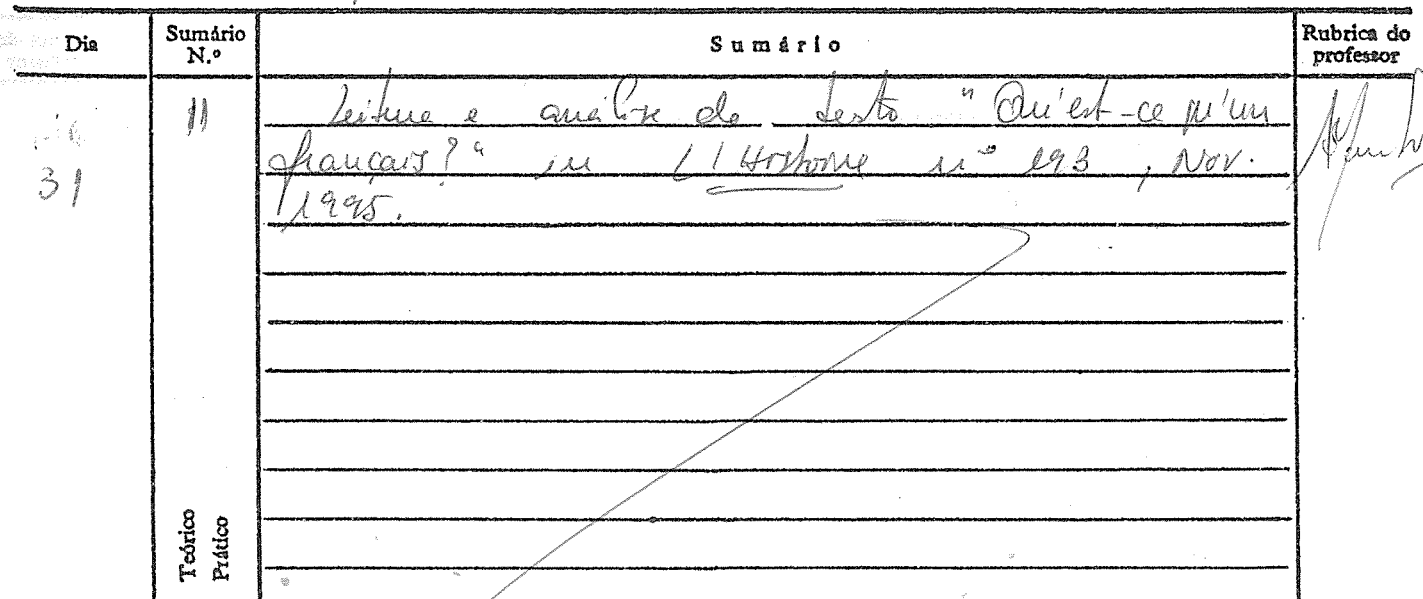 Dia
Sumário N.º
Sumário
Rubrica do professor
31
11
Leitura e análise do texto "Qu'est-ce qu'un
français?" in L'Histoire nº 193, Nov.
1995.
Teórico
Prático